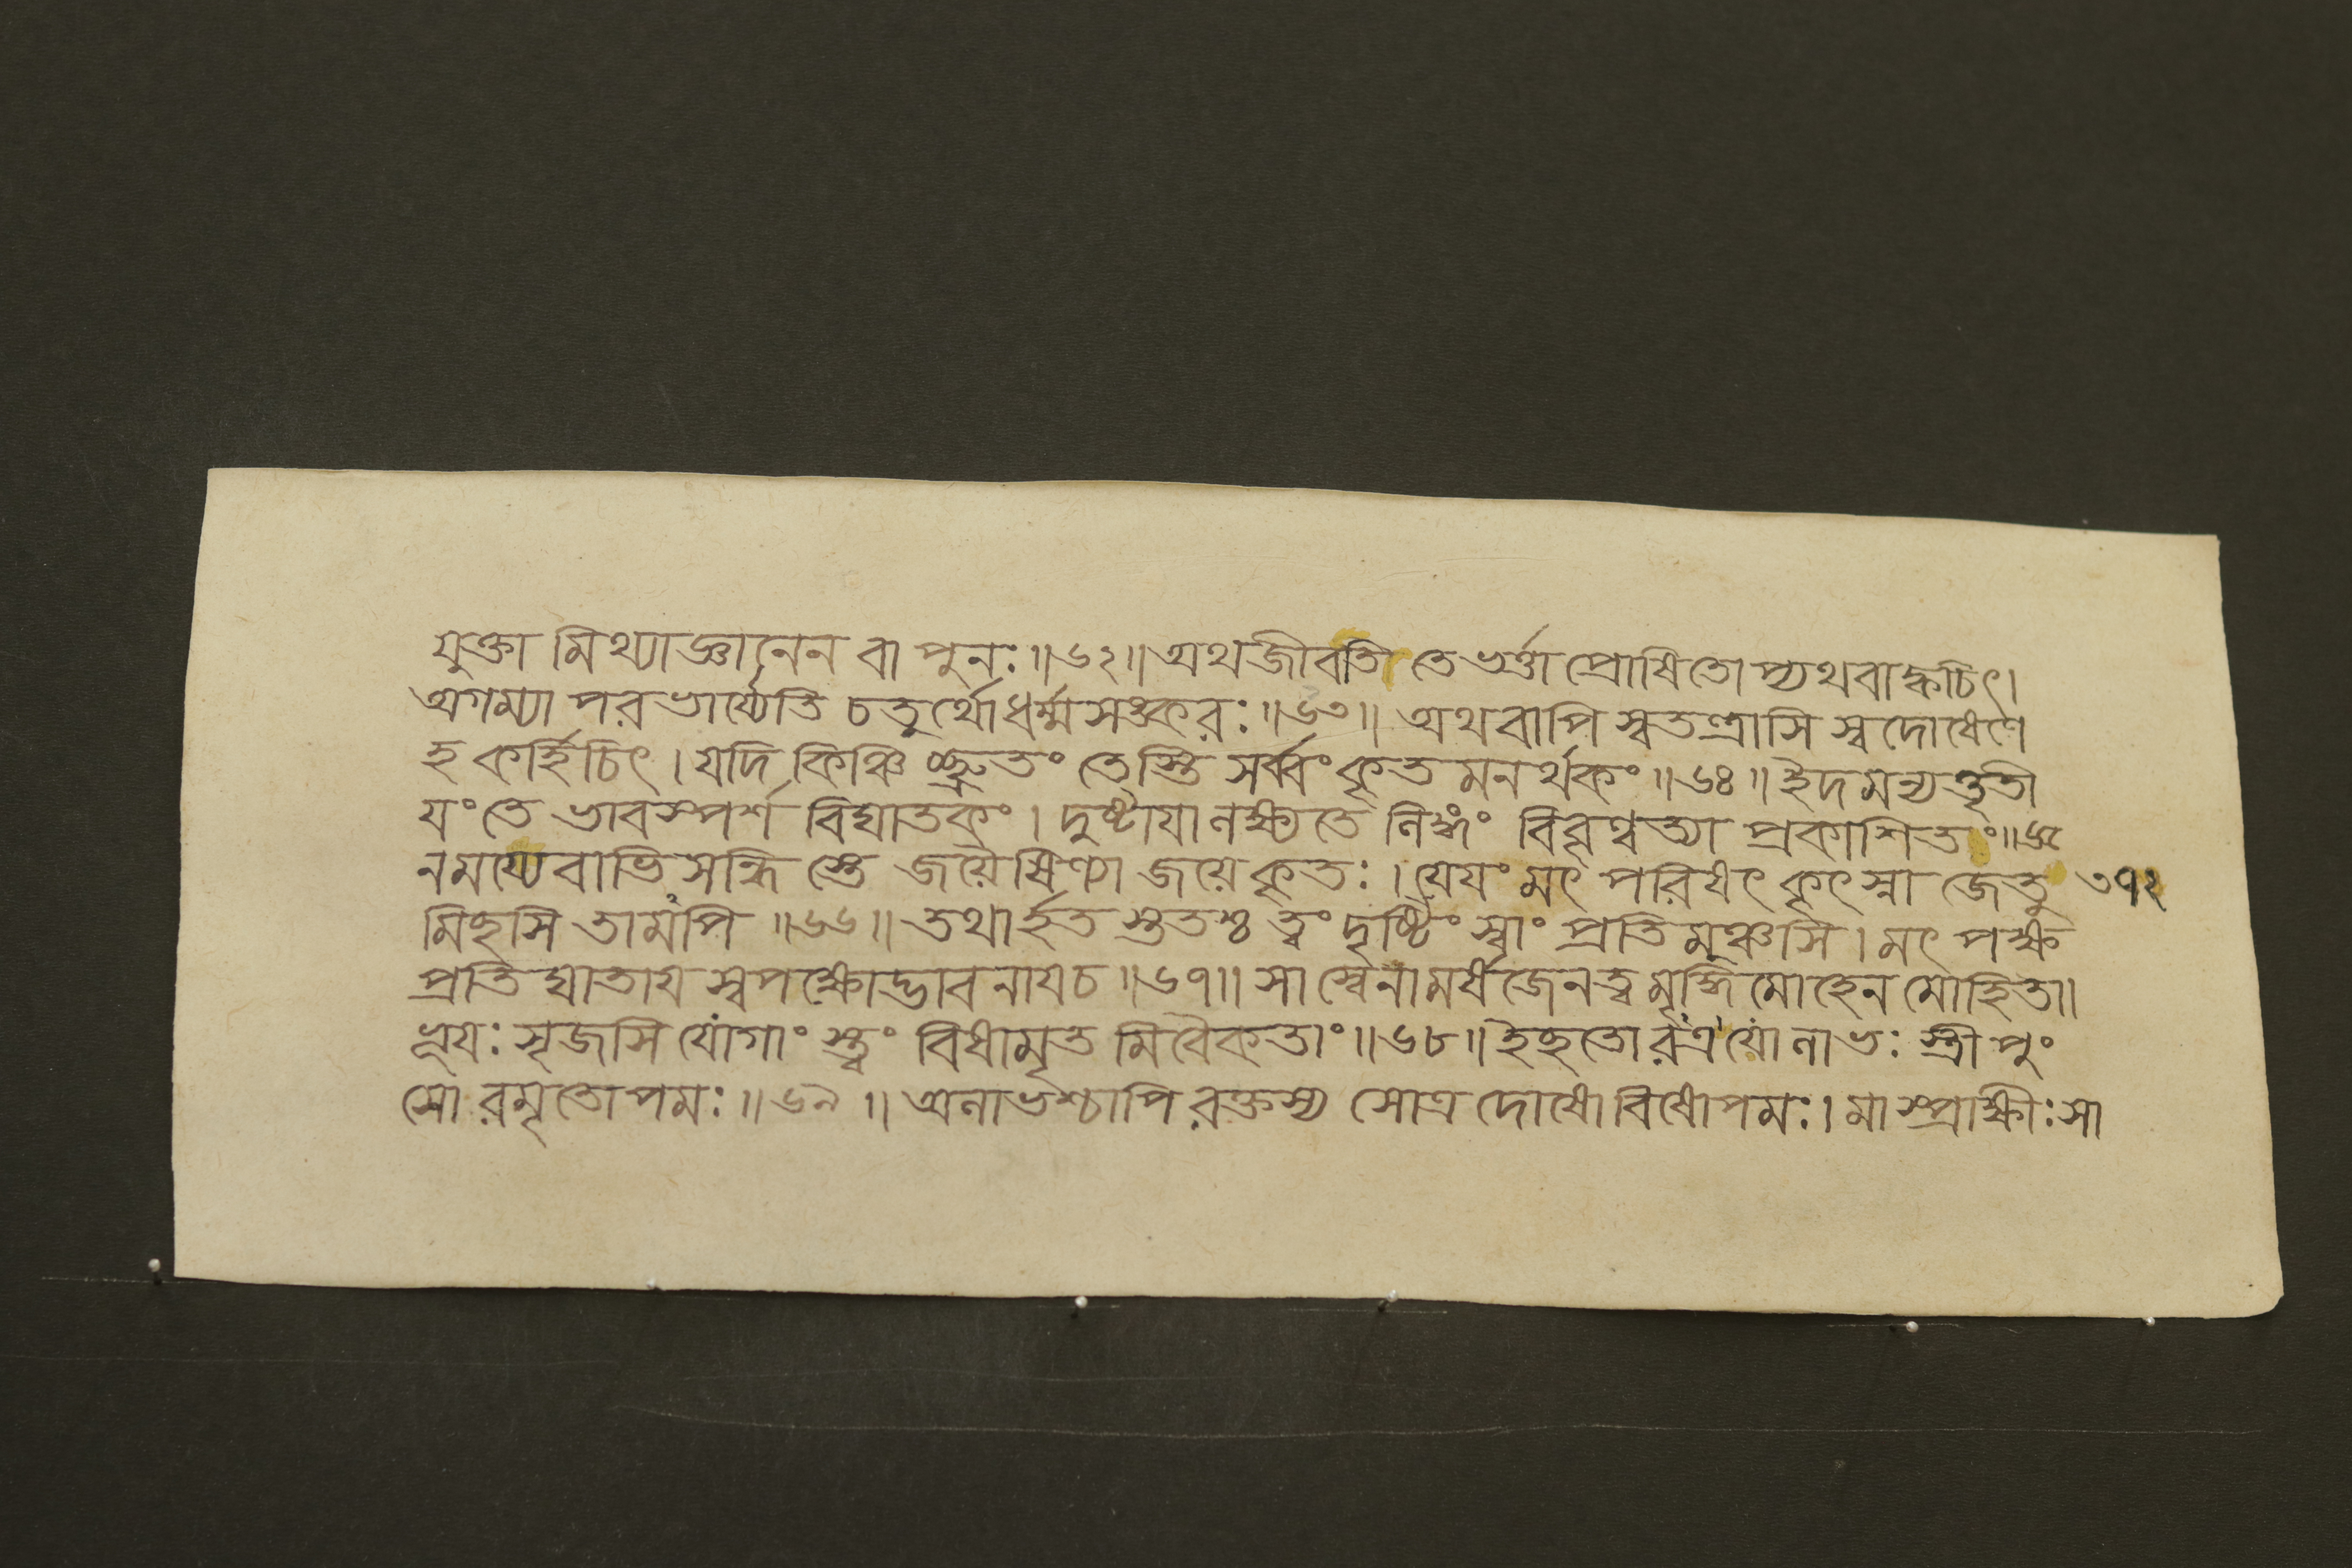 যুক্তা মিথ্যাজ্ঞানেন বা পুনঃ॥৬২॥অথজীবতি তে ভর্ত্তা প্রোষিতোপ্যথবাক্কচিৎ।
অগম্যা পরভার্য্যেতি চতুর্থোধর্ম্মসঙ্করঃ॥৬৩॥ অথবাপি স্বতন্ত্রাসি স্বদোষেণে
হ কর্হিচিৎ।যদি কিঞ্চিচ্ছ্রুতং তেস্তি সর্ব্বং কৃতমনর্থকং॥৬৪॥ইদমন্যত্তৃতী
যং তে ভাবস্পর্শ বিঘাতকং। দুষ্টাযা লক্ষ্যতে লিঙ্গং বিবৃণ্বত্যা প্রকাশিতং॥৬৫
নময্যেবাভিসন্ধিস্তে জযৈষিণ্যা জযে কৃতঃ।যেযং মৎ পরিষৎ কৃৎস্না জেতু ৩৭২
মিছসি তামপি॥৬৬॥তথার্হত স্ততশ্চ ত্বং দৃষ্টিং স্বাং প্রতিমুঞ্চসি।মৎ পক্ষ
প্রতিঘাতায স্বপক্ষোদ্ভাবনাযচ॥৬৭॥সা স্বেনামর্ষজেনত্বমৃদ্ধিমোহেন মোহিতা॥
ভূযঃ সৃজসি যোগাং স্ত্বং বিষামৃত মিবৈকতাং॥৬৮॥ইছতোরত্র যোলাভঃ স্ত্রীপুং
সোরমৃতোপমঃ॥৬৯॥অলাভশ্চাপি রক্তস্য সোত্র দোষো বিষোপমঃ।মা স্প্রাক্ষীঃসা